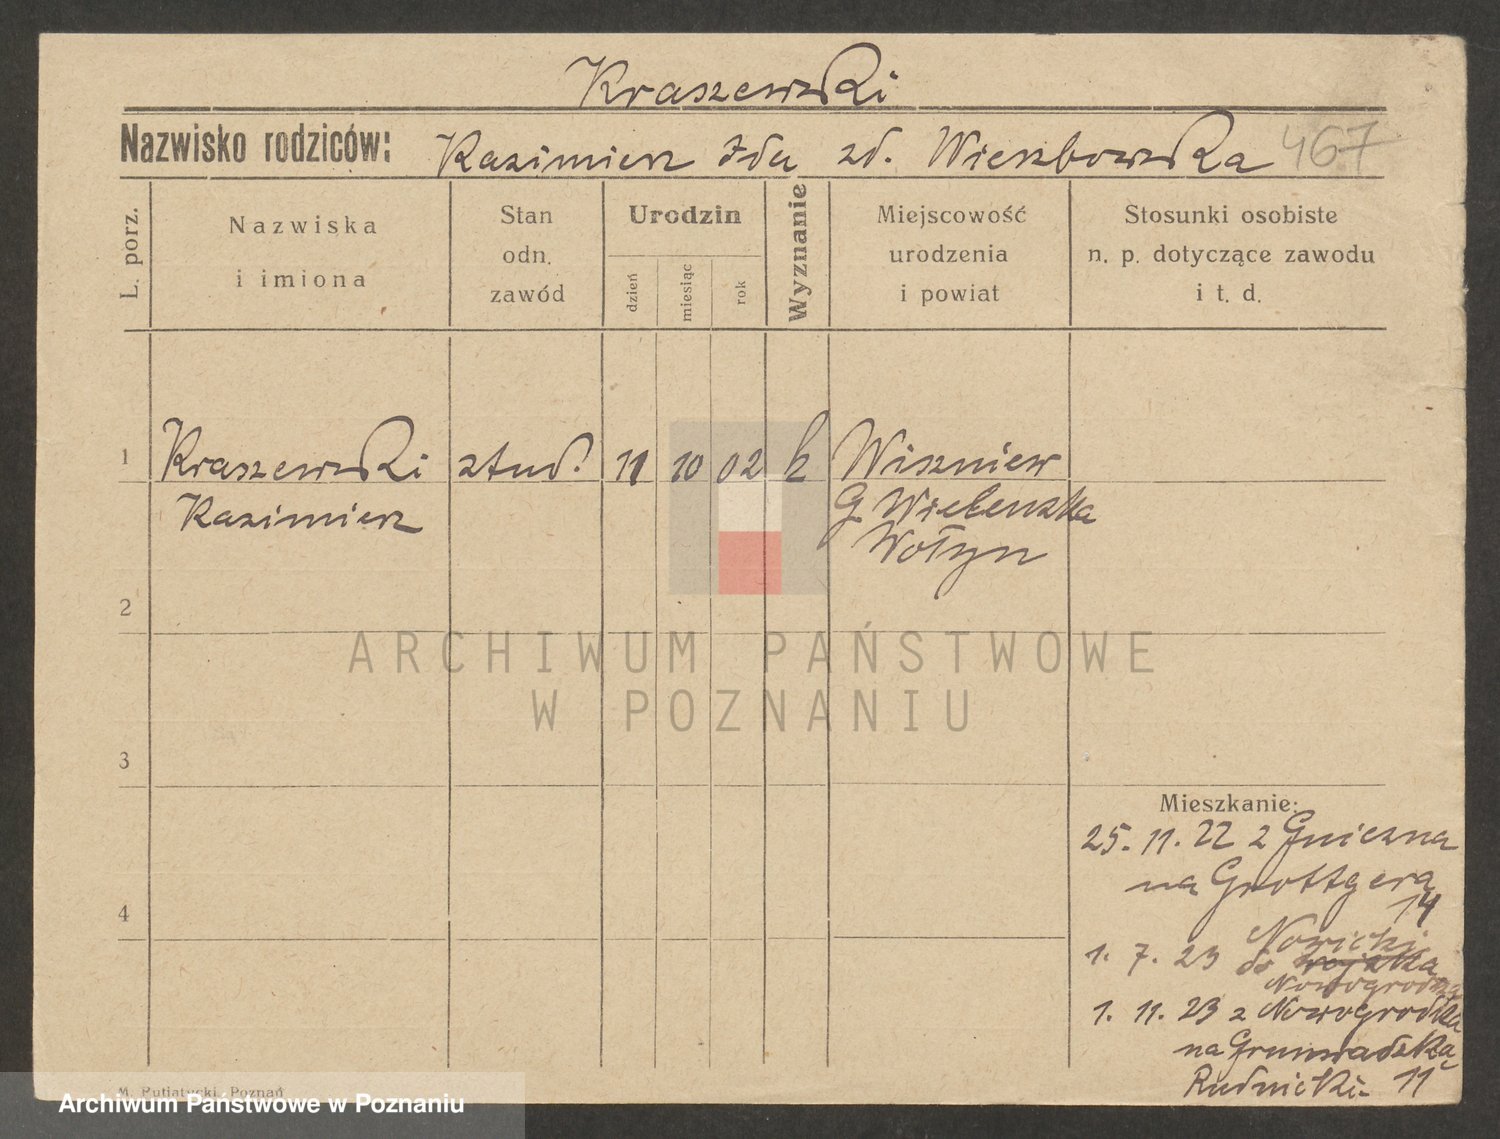 Kraszewski
Nazwisko rodziców: Kazimierz Ida zd. Wierzbowska 467
L. porz.
Nazwiska
i imiona
Stan
odn.
zawód
Urodzin
dzień
miesiąc
rok
Wyznanie
Miejscowość
urodzenia
i powiat
Stosunki osobiste
n. p. dotyczące zawodu
i t. d.
1 Kraszewski stud. 11 10 02 k Wiszniew
Kazimierz G Wielenska
Wołyn
2
ARCHIWUM PAŃSTWOWE
W POZNANIU
3
Mieszkanie:
25. 11. 22 z Gniezna
na Grottgera
4
14
Nowicki
1. 7. 23 do wojska
Nowogrodzka
1. 11. 23 z Nowogrodzka
na Grunwadzka
Rudnicki 11
M. Putiatycki, Poznań
Archiwum Państwowe w Poznaniu